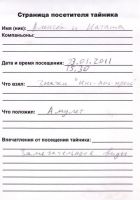 Страница посетителя тайника
Имя (ник): Алексей и Наташа
Компаньоны:
Дата и время посещения: 19.01.2011
13.30
Что взял: значки "
Что положил: Амулет
Впечатления от посещения тайника:
Замечательные виды